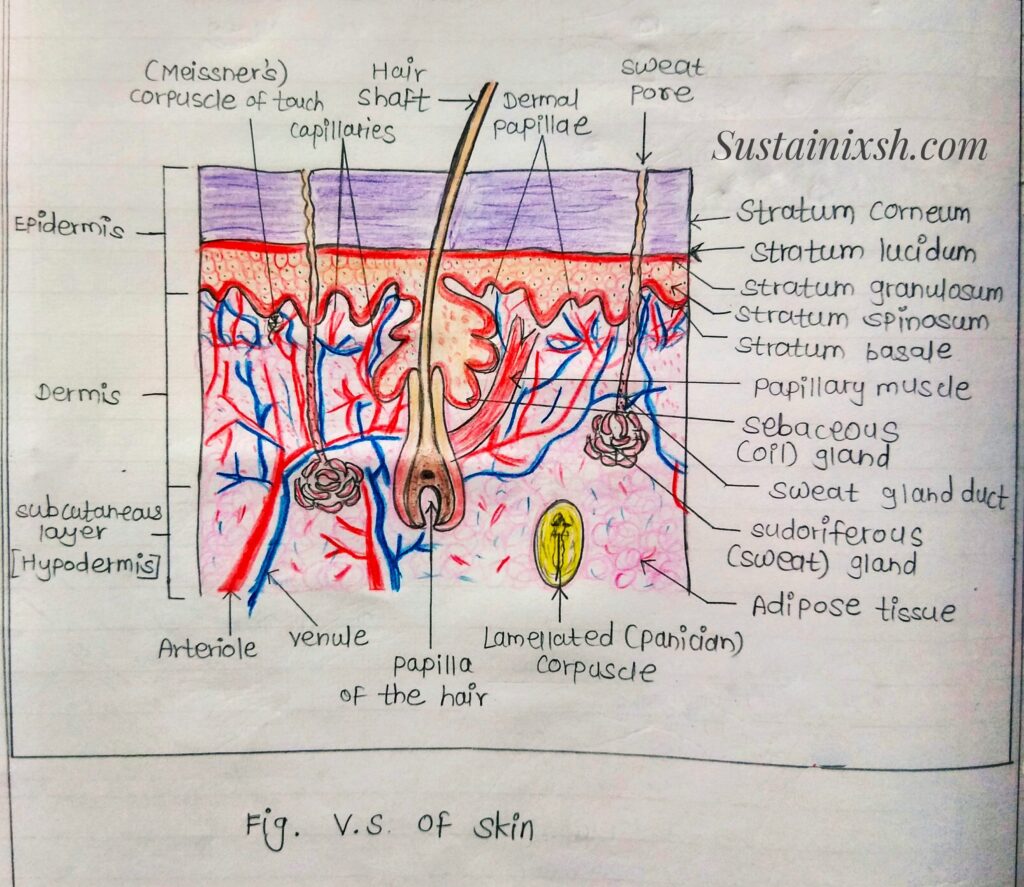 (Meissner's)
corpuscle of touch
capillaries
Hair
shaft
Dermal
papillae
sweat
pore
Sustainixsh.com
Epidermis
Dermis
subcutaneous
layer
[Hypodermis]
Stratum corneum
Stratum lucidum
Stratum granulosum
Stratum spinosum
Stratum basale
Papillary muscle
sebaceous
(oil) gland
sweat gland duct
sudoriferous
(sweat) gland
Adipose tissue
Arteriole
venule
papilla
of the hair
Lamellated (panician)
corpuscle
Fig. V.S. of skin